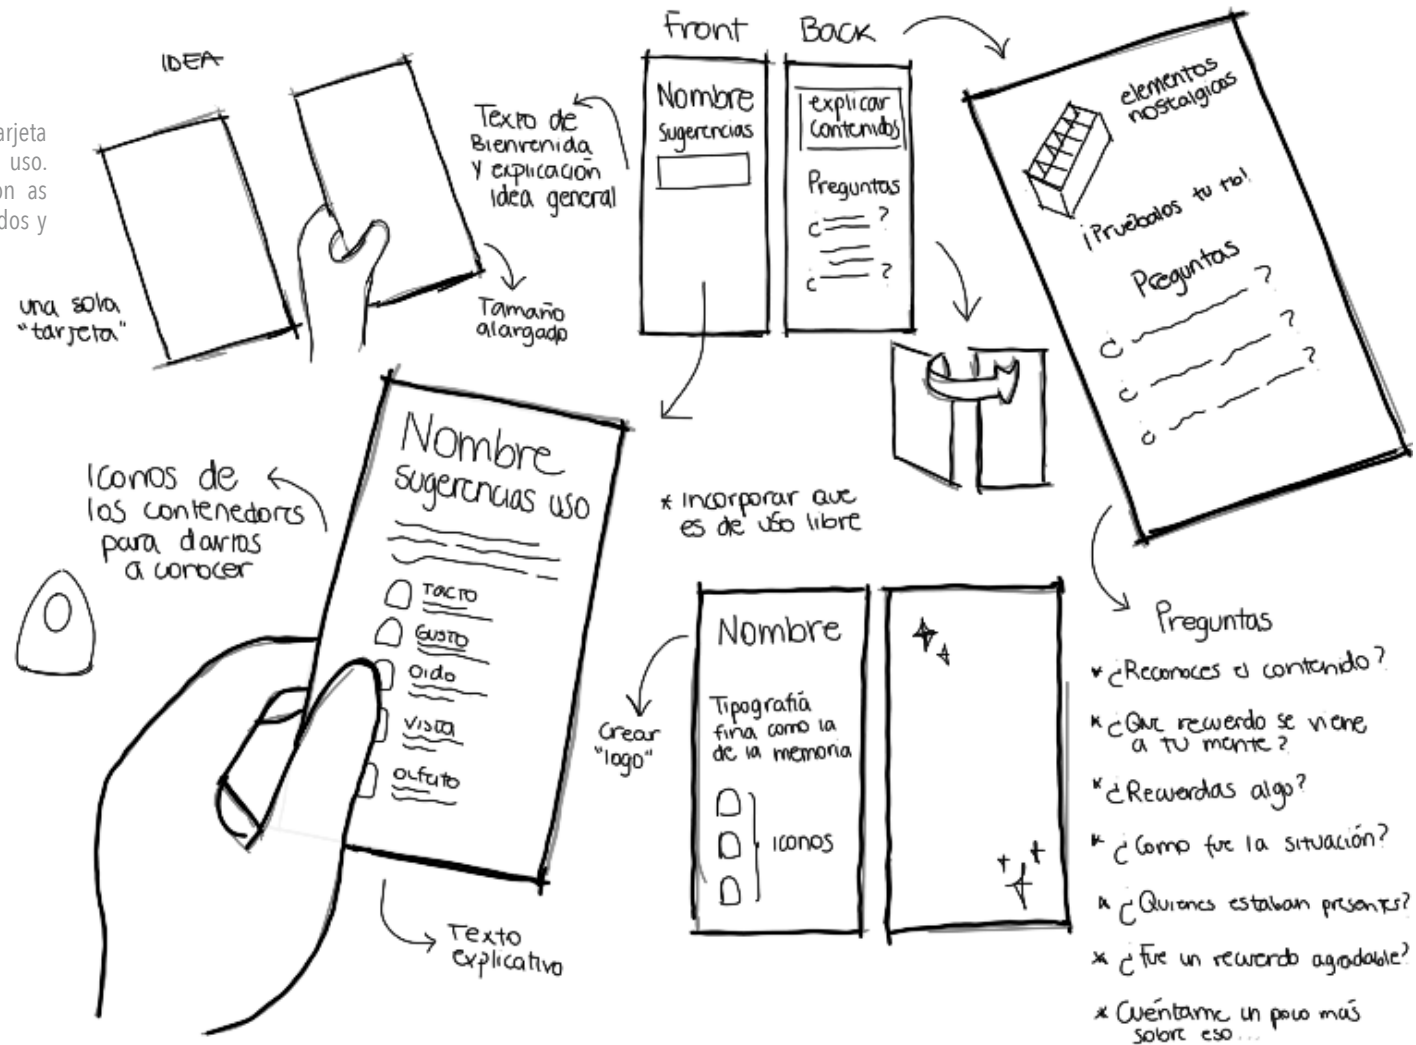 IDEA
arjeta
uso.
on as
dos y
una sola
"tarjeta"
Tamaño
alargado
Texto de
Bienvenida
y explicación
idea general
Front
Nombre
Sugerencias
Back
explicar
contenidos
Preguntas
¿ ?
¿ ?
elementos
nostalgicos
¡Pruébalos tu tb!
Preguntas
¿ ?
¿ ?
¿ ?
Iconos de
los contenedores
para darlos
a conocer
Nombre
sugerencias uso
Tacto
Gusto
oido
vista
olfato
Texto
explicativo
* Incorporar que
es de uso libre
Crear
"logo"
Nombre
Tipografía
fina como la
de la memoria
Iconos
Preguntas
* ¿Reconoces el contenido?
* ¿Que recuerdo se viene
a tu mente?
* ¿Recuerdas algo?
* ¿Como fue la situación?
* ¿Quienes estaban presentes?
* ¿Fue un recuerdo agradable?
* Cuéntame un poco más
sobre eso...